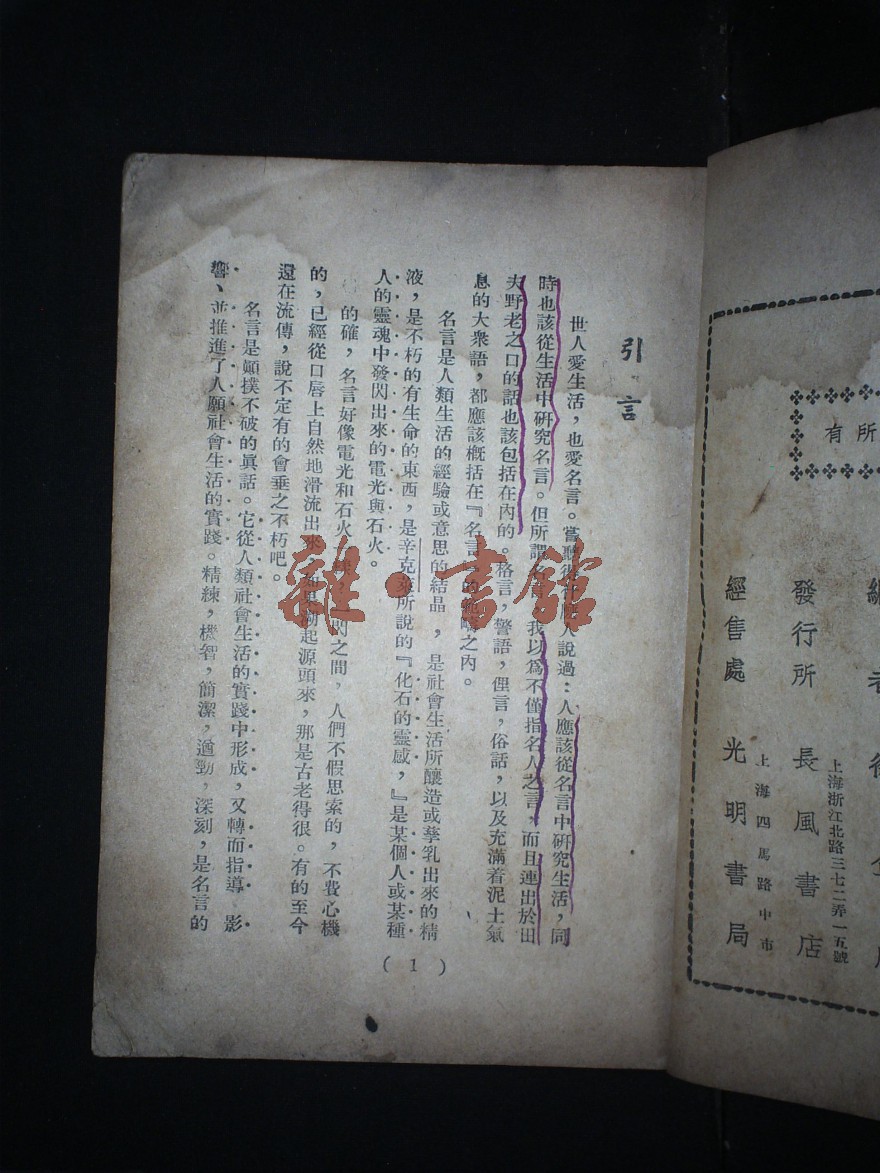 有所
編者
發行所 長風書店
上海浙江北路三七二弄一五號
經售處 光明書局
上海四馬路中市
引言
世人愛生活，也愛名言。嘗聽得有人說過：人應該從名言中研究生活，同
時也該從生活中研究名言。但所謂名言，我以爲不僅指名人之言，而且連出於田
夫野老之口的話也該包括在內的。格言，警語，俚言，俗話，以及充滿着泥土氣
息的大衆語，都應該概括在『名言』的範疇之內。
名言是人類生活的經驗或意思的結晶，是社會生活所釀造或孳乳出來的精
液，是不朽的有生命的東西，是辛克萊所說的『化石的靈感，』是某個人或某種
人的靈魂中發閃出來的電光與石火。
的確，名言好像電光和石火 閃之間，人們不假思索的，不費心機
的，已經從口唇上自然地滑流出來 起源頭來，那是古老得很。有的至今
還在流傳，說不定有的會垂之不朽吧。
名言是顚撲不破的眞話。它從人類社會生活的實踐中形成，又轉而指導，影
響、並推進了人願社會生活的實踐。精練，機智，簡潔，遒勁，深刻，是名言的
( 1 )
雜·書館